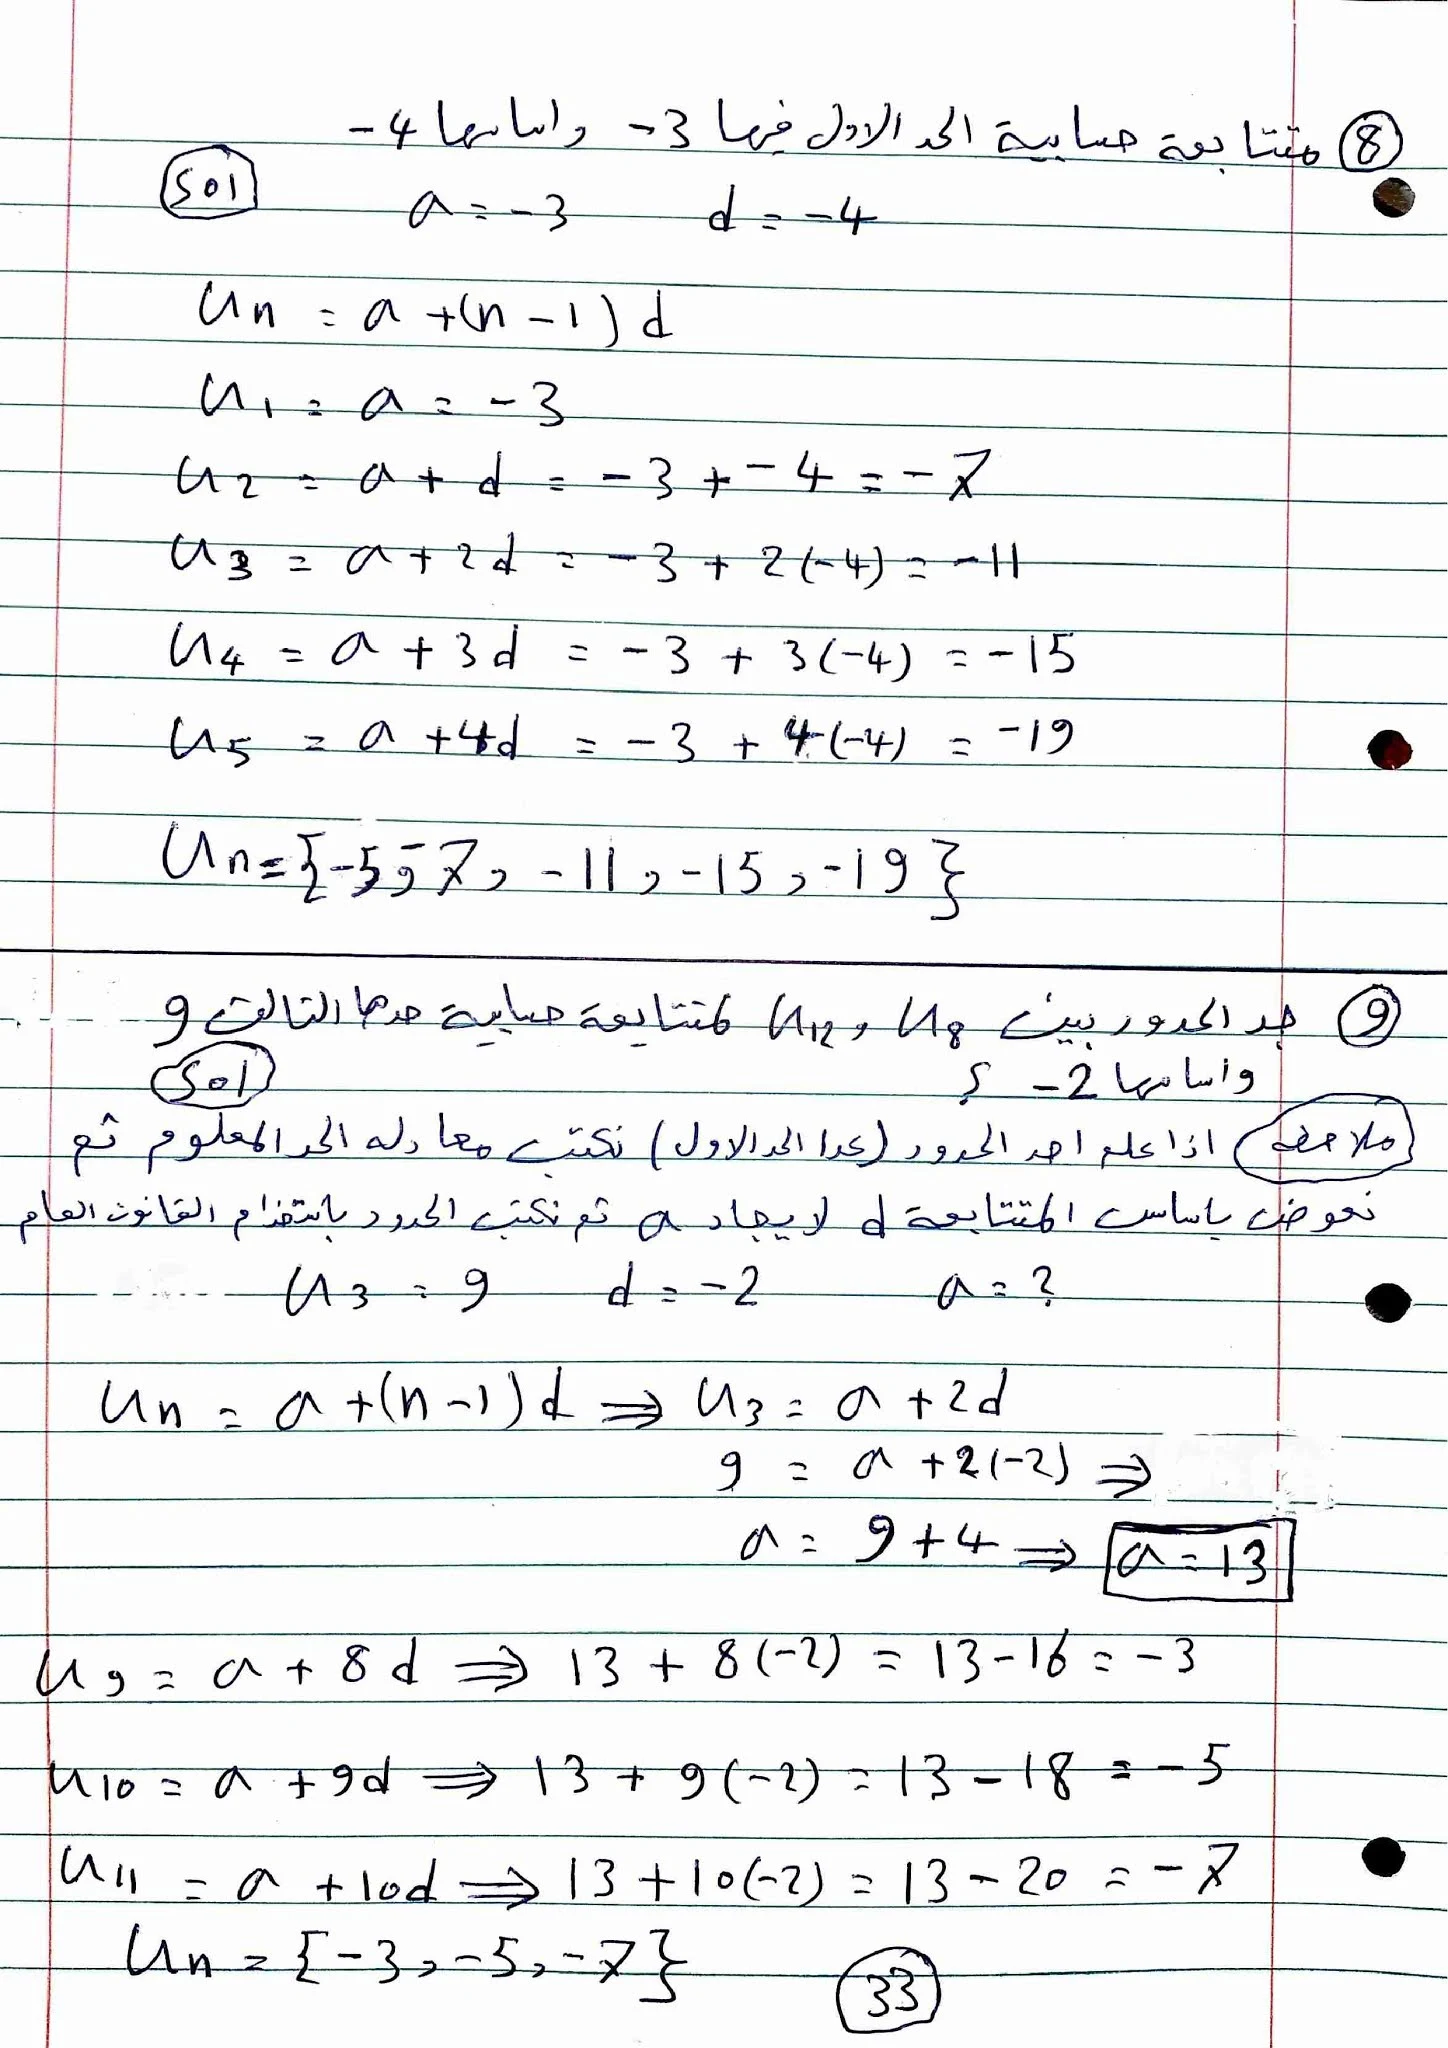 ⑧ متتابعة حسابية الحد الاول فيها 3- واساسها 4-
sol
a = -3 d = -4
Un = a + (n - 1) d
U1 = a = -3
U2 = a + d = -3 + -4 = -7
U3 = a + 2d = -3 + 2(-4) = -11
U4 = a + 3d = -3 + 3(-4) = -15
U5 = a + 4d = -3 + 4(-4) = -19
Un = {-5, -7, -11, -15, -19}
⑨ جد الحدود بين U8 و U12 لمتتابعة حسابية حدها الثالث 9
واساسها 2- ؟
sol
ملاحظة اذا علم احد الحدود (عدا الحد الاول) نكتب معادلة الحد المعلوم ثم
نعوض باساس المتتابعة d لايجاد a ثم نكتب الحدود باستخدام القانون العام
U3 = 9 d = -2 a = ?
Un = a + (n - 1) d ⇒ U3 = a + 2d
9 = a + 2(-2) ⇒
a = 9 + 4 ⇒ a = 13
U9 = a + 8d ⇒ 13 + 8(-2) = 13 - 16 = -3
U10 = a + 9d ⇒ 13 + 9(-2) = 13 - 18 = -5
U11 = a + 10d ⇒ 13 + 10(-2) = 13 - 20 = -7
Un = {-3, -5, -7}
33